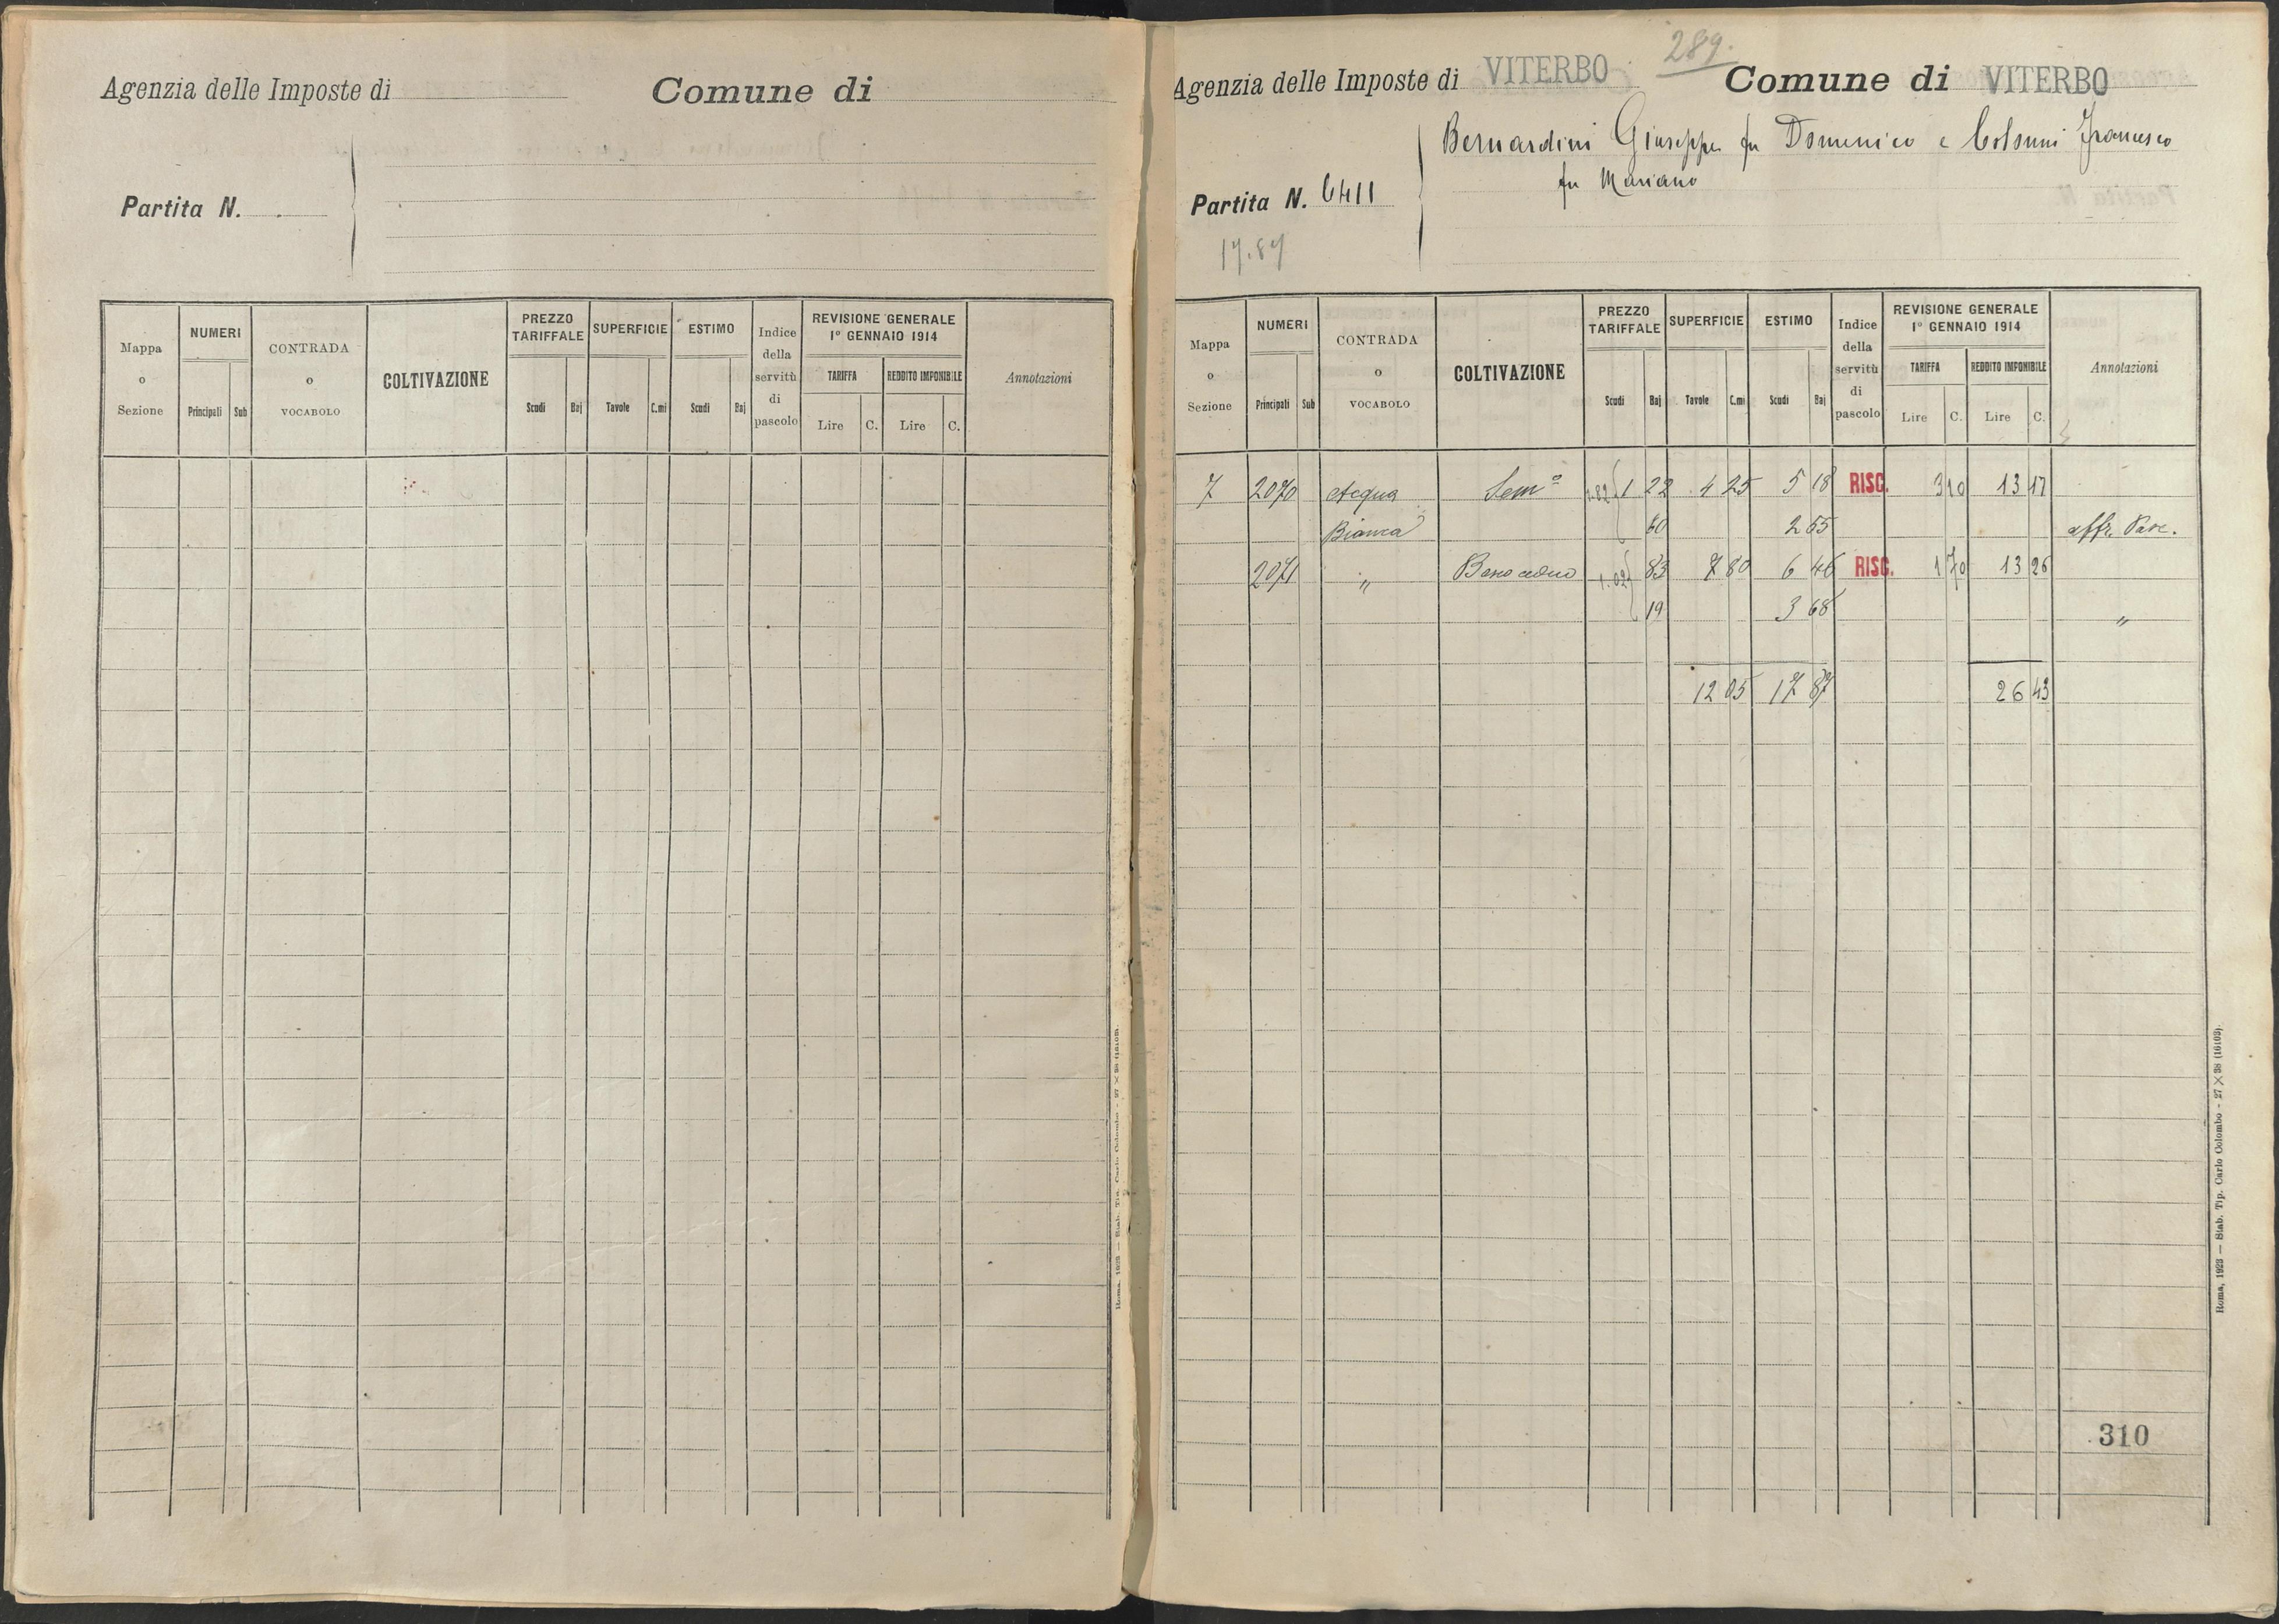 Agenzia delle Imposte di
Comune di
Partita N.
Mappa o Sezione
NUMERI
Principali Sub
CONTRADA o VOCABOLO
COLTIVAZIONE
PREZZO TARIFFALE
Scudi Baj
SUPERFICIE
Tavole C.mi
ESTIMO
Scudi Baj
Indice della servitù di pascolo
REVISIONE GENERALE
1° GENNAIO 1914
TARIFFA
Lire C.
REDDITO IMPONIBILE
Lire C.
Annotazioni
289.
Agenzia delle Imposte di VITERBO
Comune di VITERBO
Bernardini Giuseppe fu Domenico e Colonni Francesco
fu Mariano
Partita N. 6411
17.87
Mappa o Sezione
NUMERI
Principali Sub
CONTRADA o VOCABOLO
COLTIVAZIONE
PREZZO TARIFFALE
Scudi Baj
SUPERFICIE
Tavole C.mi
ESTIMO
Scudi Baj
Indice della servitù di pascolo
REVISIONE GENERALE
1° GENNAIO 1914
TARIFFA
Lire C.
REDDITO IMPONIBILE
Lire C.
Annotazioni
7 2070 Acqua Sem° 1.82 1 22 4 25 5 18 RISC. 3 10 13 17
Bianca 60 2 55 affr. Pasc.
2071 " 1.02 83 7 80 6 46 RISC. 1 70 13 26
19 3 68 "
12 05 17 87 26 43
310
Roma, 1923 — Stab. Tip. Carlo Colombo - 27 X 38 (10103).